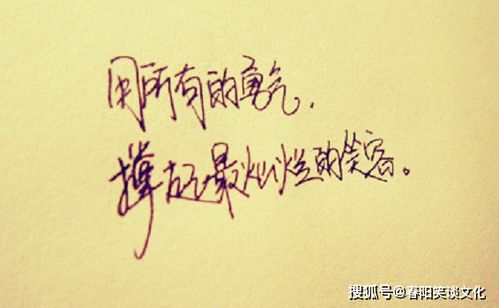 用所有的勇气，
撑起最灿烂的笑容。
搜狐号@春阳笑谈文化